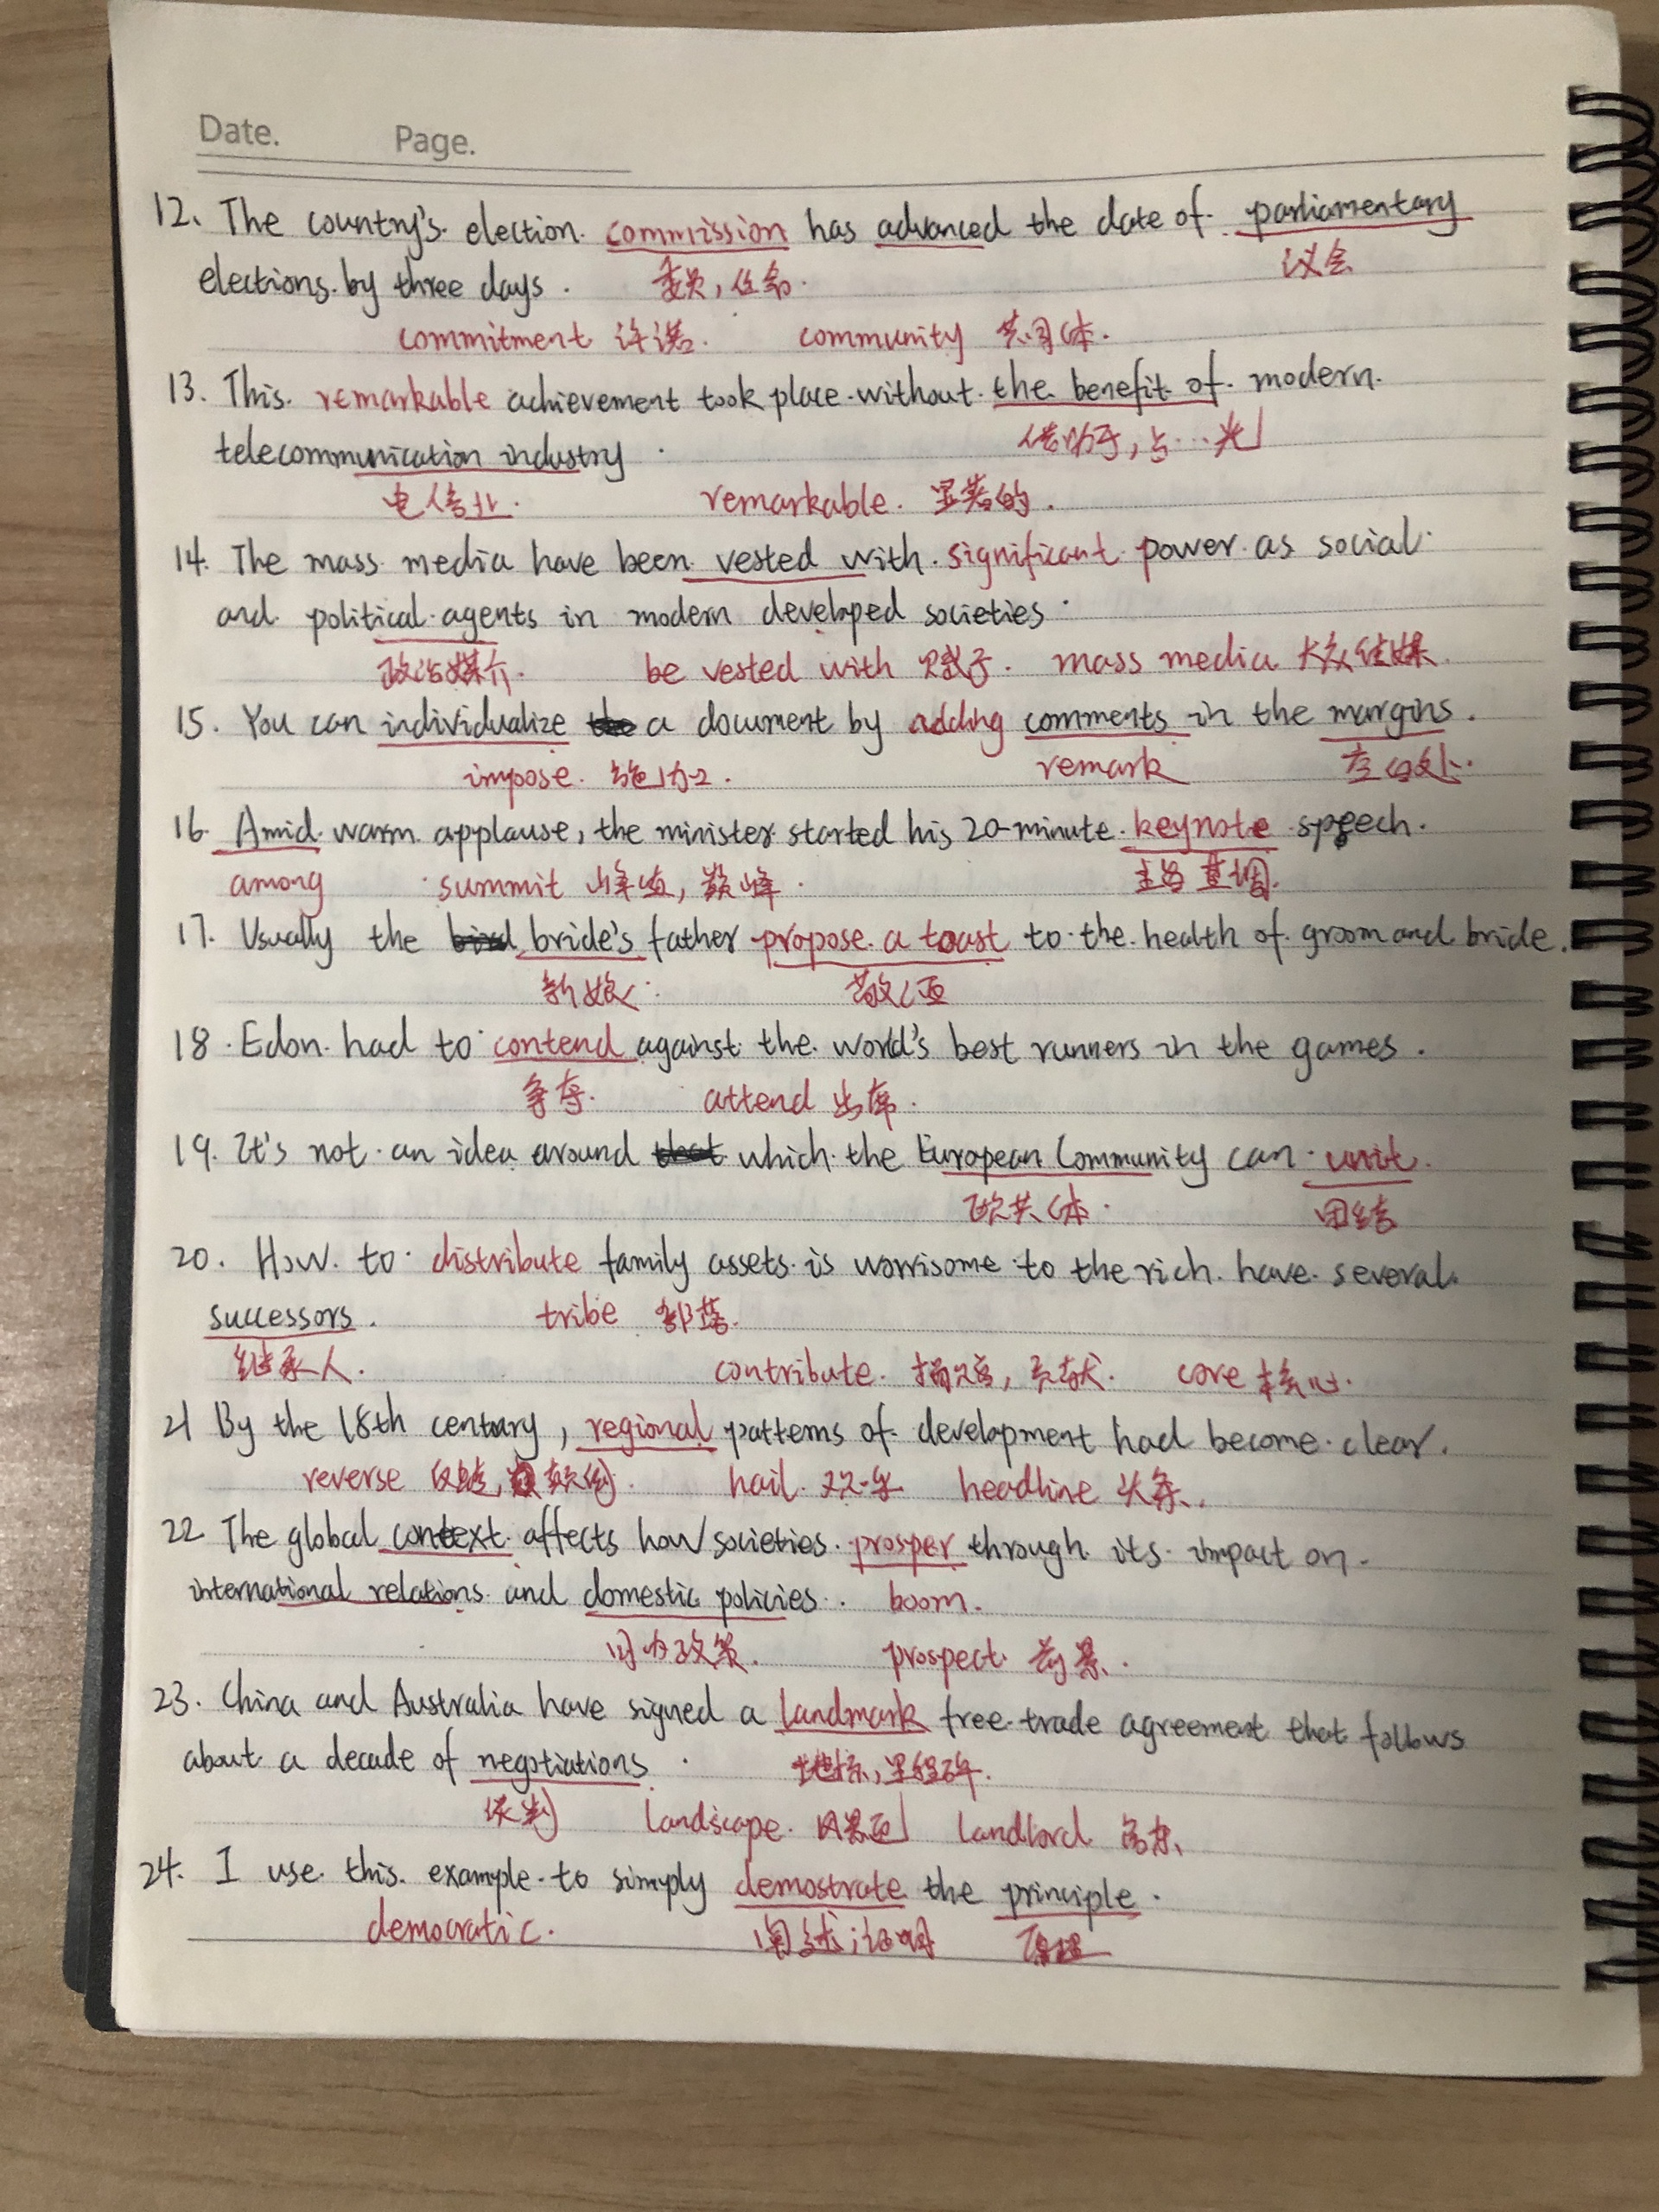 Date. Page.
12. The country's election commission has advanced the date of parliamentary
议会
elections by three days. 委员, 任命.
commitment 许诺. community 共同体.
13. This remarkable achievement took place without the benefit of modern
telecommunication industry. 借助于, 占...光
电信业. remarkable. 显著的.
14. The mass media have been vested with significant power as social
and political agents in modern developed societies.
政治媒介. be vested with 赋予. mass media 大众传媒.
15. You can individualize a document by adding comments in the margins.
impose. 施加. remark 空白处.
16. Amid warm applause, the minister started his 20-minute keynote speech.
among summit 峰值, 巅峰. 主旨 基调.
17. Usually the bride's father propose a toast to the health of groom and bride.
新娘. 敬酒
18. Edon had to contend against the world's best runners in the games.
争夺. attend 出席.
19. It's not an idea around which the European Community can unit.
欧共体. 团结
20. How to distribute family assets is worrisome to the rich have several
successors. tribe 部落.
继承人. contribute. 捐赠, 贡献. core 核心.
21 By the 18th century, regional patterns of development had become clear.
reverse hail. 欢呼 headline 头条.
22 The global context affects how societies prosper through its impact on
international relations and domestic policies. boom.
国内政策. prospect. 前景.
23. China and Australia have signed a landmark free-trade agreement that follows
about a decade of negotiations. 地标, 里程碑.
谈判 landscape. 风景画 landlord 房东.
24. I use this example to simply demostrate the principle.
democratic. 阐述; 证明 原理